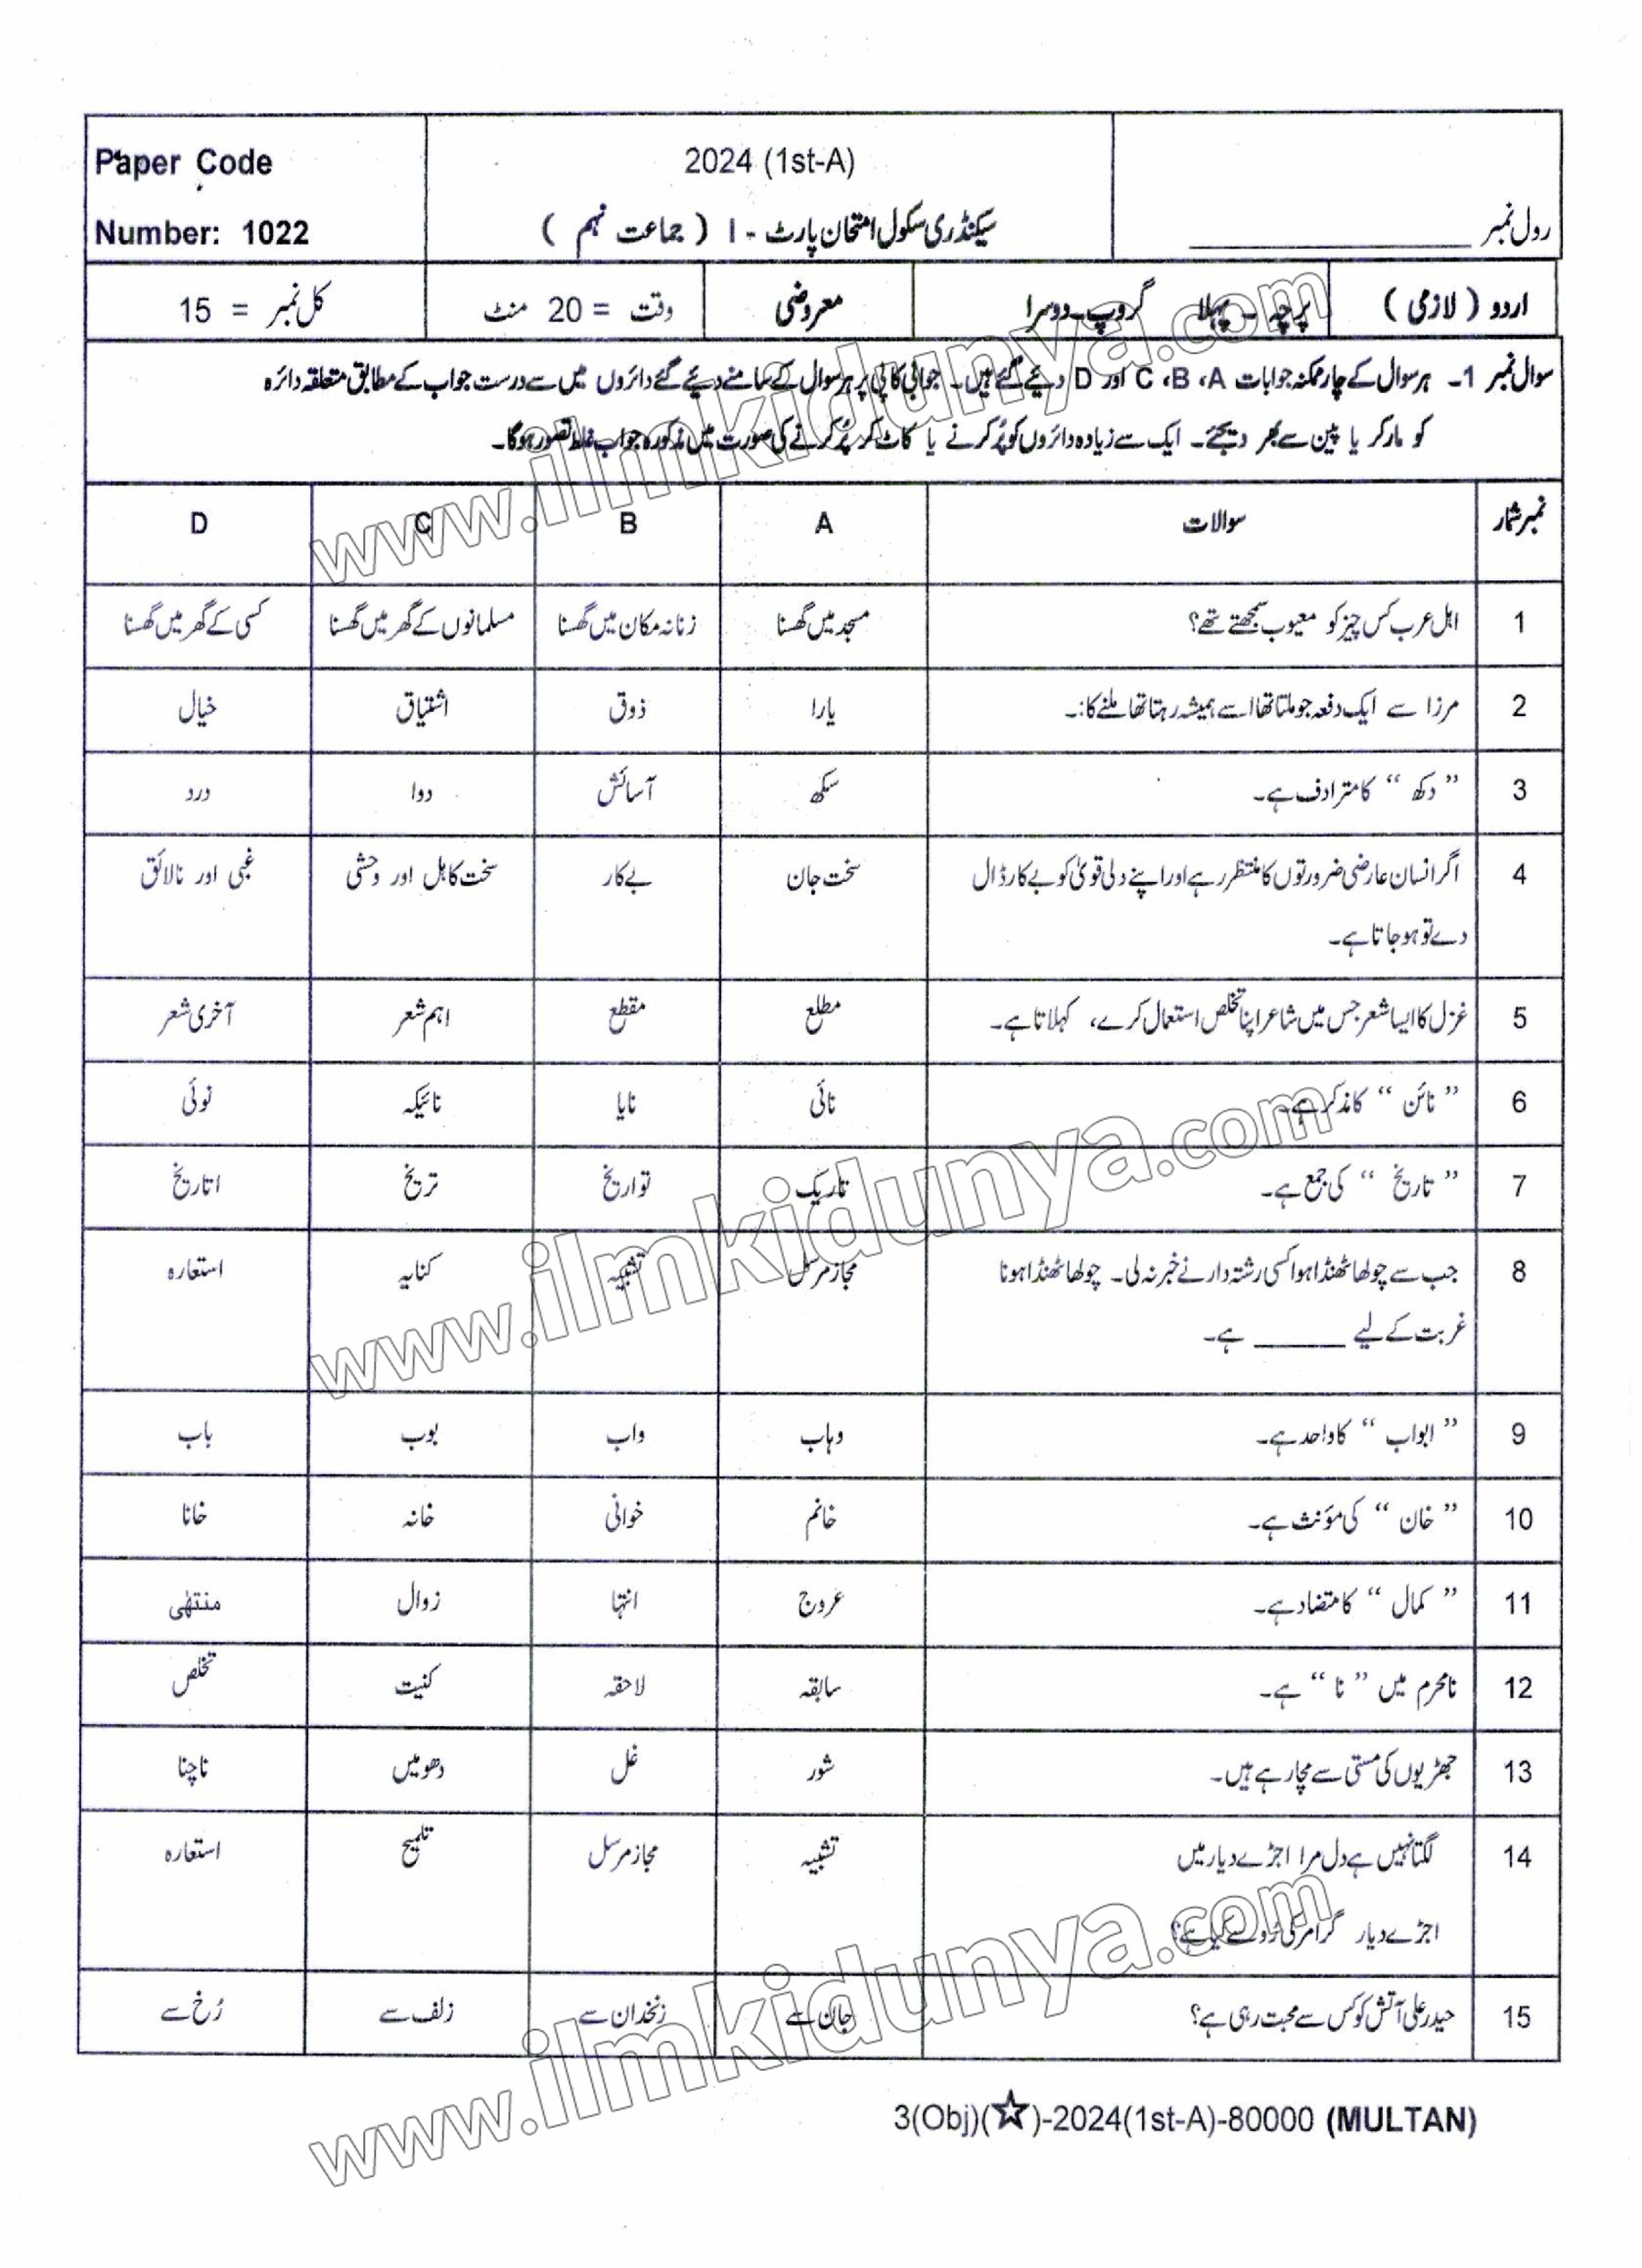 Paper Code
Number: 1022
2024 (1st-A)
سیکنڈری سکول امتحان پارٹ - I ( جماعت نہم )
رول نمبر ____________
اردو ( لازمی ) پرچہ ۔ پہلا گروپ۔دوسرا معروضی وقت = 20 منٹ کل نمبر = 15
سوال نمبر 1۔ ہر سوال کے چار ممکنہ جوابات A، B، C اور D دیئے گئے ہیں۔ جوابی کاپی پر ہر سوال کے سامنے دیئے گئے دائروں میں سے درست جواب کے مطابق متعلقہ دائرہ
کو مارکر یا پین سے بھر دیجئے۔ ایک سے زیادہ دائروں کو پُر کرنے یا کاٹ کر پُر کرنے کی صورت میں مذکورہ جواب غلط تصور ہوگا۔
نمبر شمار سوالات A B C D
1 اہل عرب کس چیز کو معیوب سمجھتے تھے؟ مسجد میں گھسنا زنانہ مکان میں گھسنا مسلمانوں کے گھر میں گھسنا کسی کے گھر میں گھسنا
2 مرزا سے ایک دفعہ جو ملتا تھا اسے ہمیشہ رہتا تھا ملنے کا:۔ یارا ذوق اشتیاق خیال
3 ” دکھ “ کا مترادف ہے۔ سکھ آسائش دوا درد
4 اگر انسان عارضی ضرورتوں کا منتظر رہے اور اپنے دلی قویٰ کو بے کار ڈال سخت جان بے کار سخت کاہل اور وحشی غبی اور نالائق
دے تو ہو جاتا ہے۔
5 غزل کا ایسا شعر جس میں شاعر اپنا تخلص استعمال کرے، کہلاتا ہے۔ مطلع مقطع اہم شعر آخری شعر
6 ” نائن “ کا مذکر ہے۔ نائی نایا نائیکہ نوئی
7 ” تاریخ “ کی جمع ہے۔ تاریک تواریخ تریخ اتاریخ
8 جب سے چولھا ٹھنڈا ہوا کسی رشتہ دار نے خبر نہ لی۔ چولھا ٹھنڈا ہونا مجاز مرسل تشبیہ کنایہ استعارہ
غربت کے لیے ______ ہے۔
9 ” ابواب “ کا واحد ہے۔ وہاب واب بوب باب
10 ” خان “ کی مؤنث ہے۔ خانم خوانی خانہ خانا
11 ” کمال “ کا متضاد ہے۔ عروج انتہا زوال منتھی
12 نامحرم میں ” نا “ ہے۔ سابقہ لاحقہ کنیت تخلص
13 جھڑیوں کی مستی سے مچا رہے ہیں۔ شور غل دھومیں ناچنا
14 لگتا نہیں ہے دل مرا اجڑے دیار میں تشبیہ مجاز مرسل تلمیح استعارہ
اجڑے دیار گرامر کی رُو سے کیا ہے؟
15 حیدر علی آتش کو کس سے محبت رہی ہے؟ جان سے زنخدان سے زلف سے رُخ سے
3(Obj)(☆)-2024(1st-A)-80000 (MULTAN)
www.ilmkidunya.com
www.ilmkidunya.com
www.ilmkidunya.com